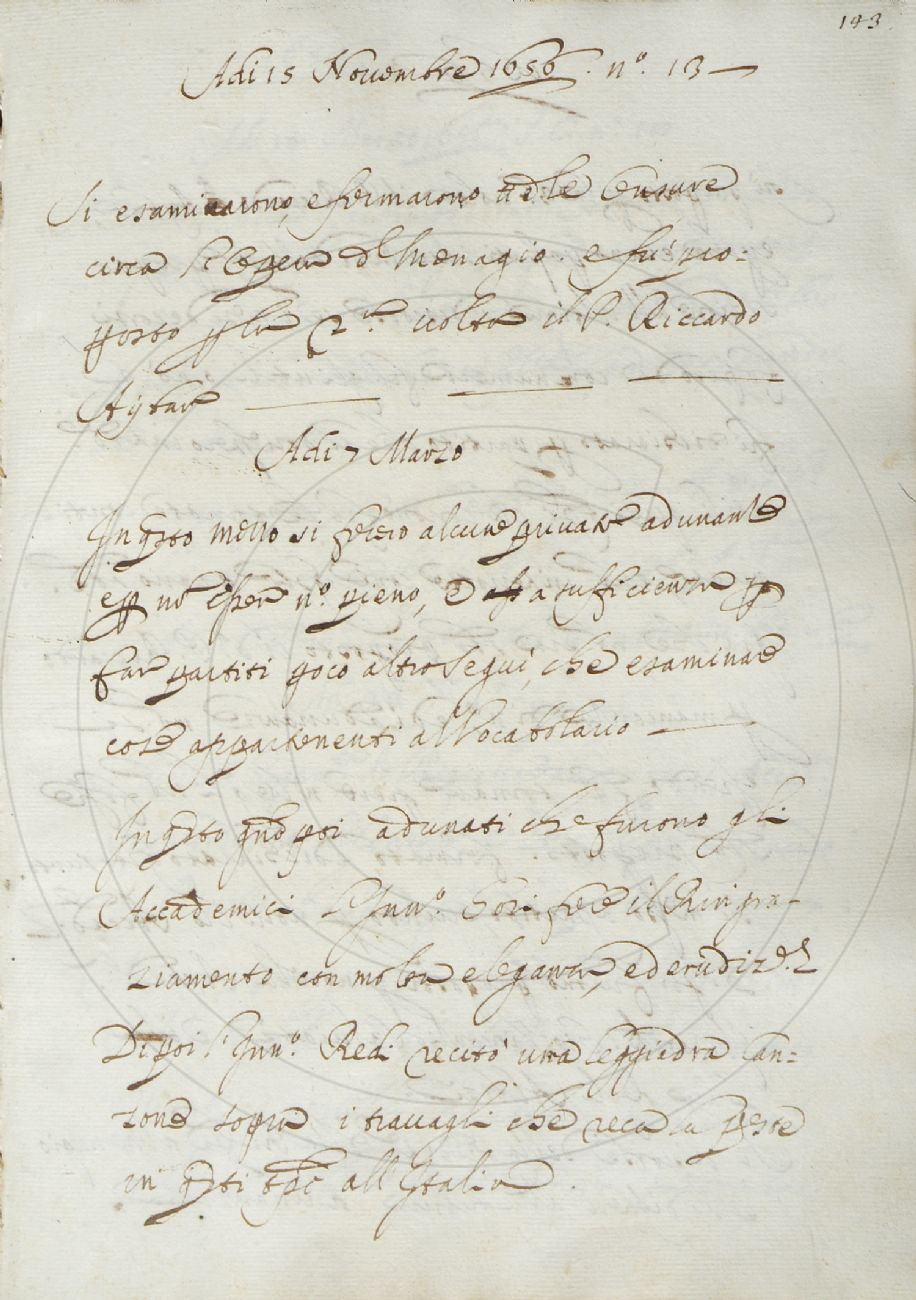 143
Adi 15 Novembre 1656. n.º 13
Si esaminarono, e fermarono le Censure
circa l'Opera d Menagio. e fu' pro=
posto p la 2.ª volta il P. Riccardo
Adi 7 Marzo
In qsto mezzo si fecero alcune private adunanze
e p nō esser n.º pieno, e a sufficienza p
far partiti poco altro seguì, che esaminare
cose appartenenti al Vocabolario
In qsto gno poi adunati che furono gli
Accademici l'Inn.º fece il Ringra-
ziamento con molta eleganza, ed erudiz.e
Dipoi l'Inn.º Redi recitò una leggiadra Can=
zone sopra i travagli che reca la peste
in qsti tpi all Italia.